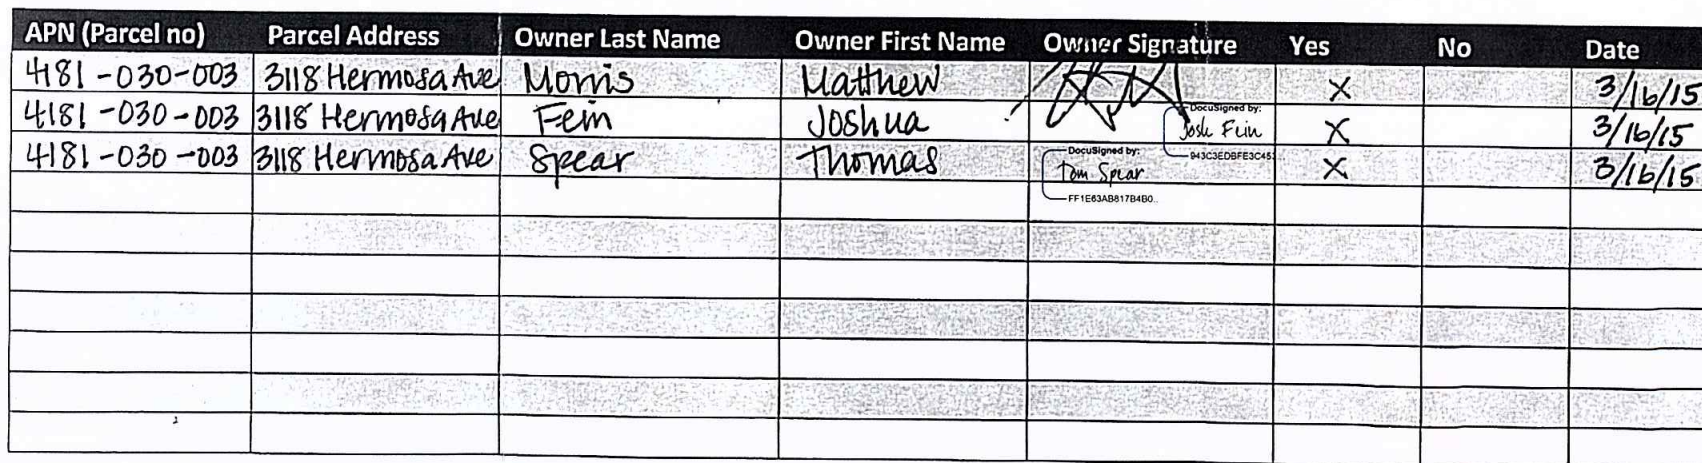 APN (Parcel no) Parcel Address Owner Last Name Owner First Name Owner Signature Yes No Date
4181-030-003 3118 Hermosa Ave Morris Matthew X 3/16/15
4181-030-003 3118 Hermosa Ave Fein Joshua DocuSigned by: Josh Fein 943C3EDBFE3C45 X 3/16/15
4181-030-003 3118 Hermosa Ave Spear Thomas DocuSigned by: Tom Spear FF1E63AB817B4B0... X 3/16/15